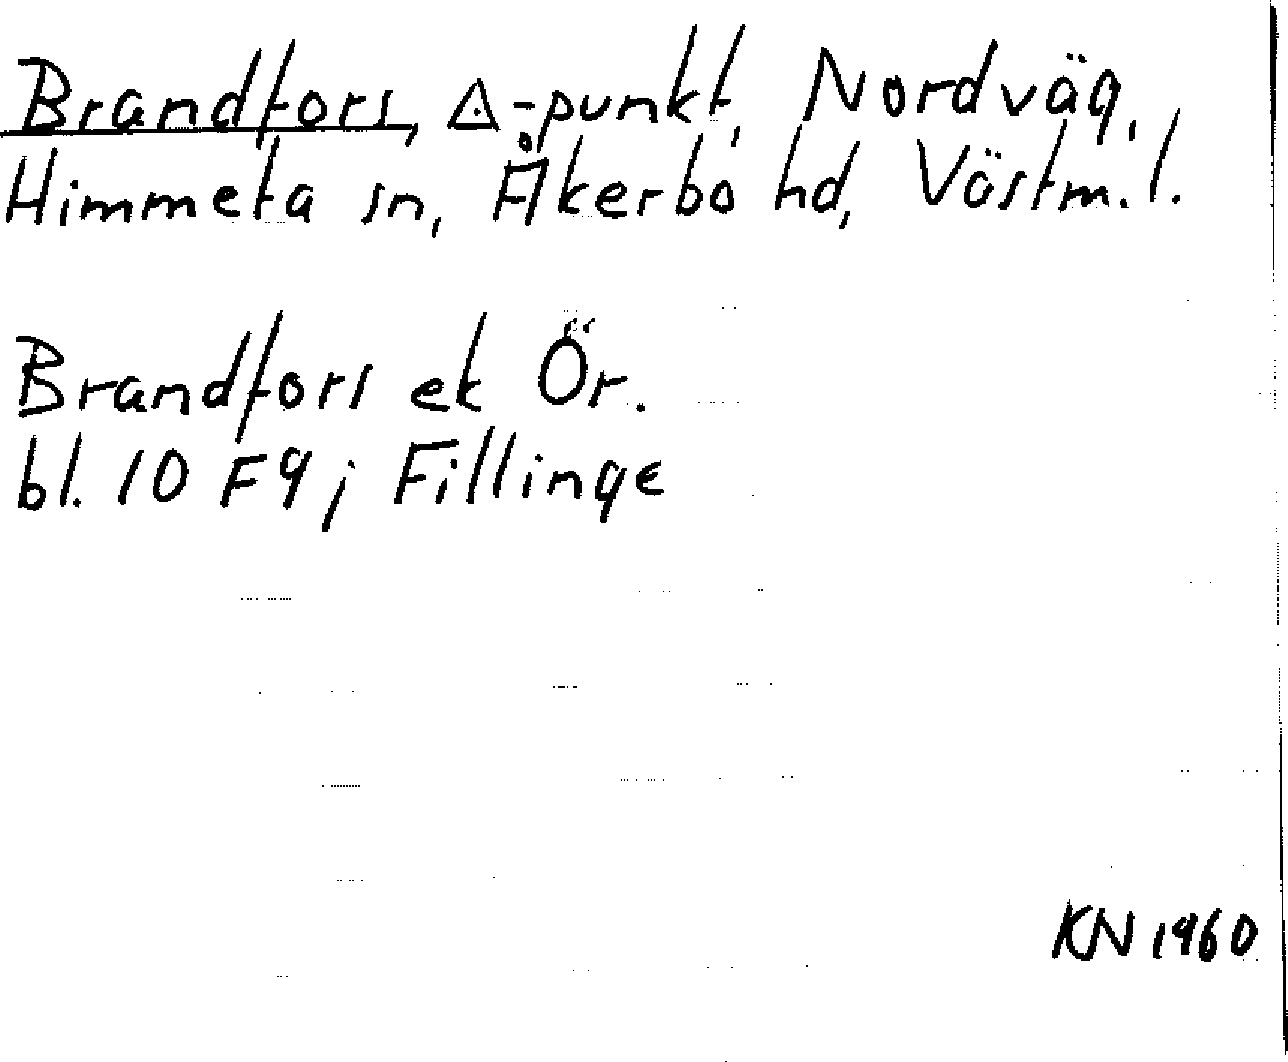 Brandfors, △-punkt, Nordväg,
Himmeta sn, Åkerbo hd, Västm. l.
Brandfors ek Ör.
bl. 10 F9; Fillinge
KN 1960